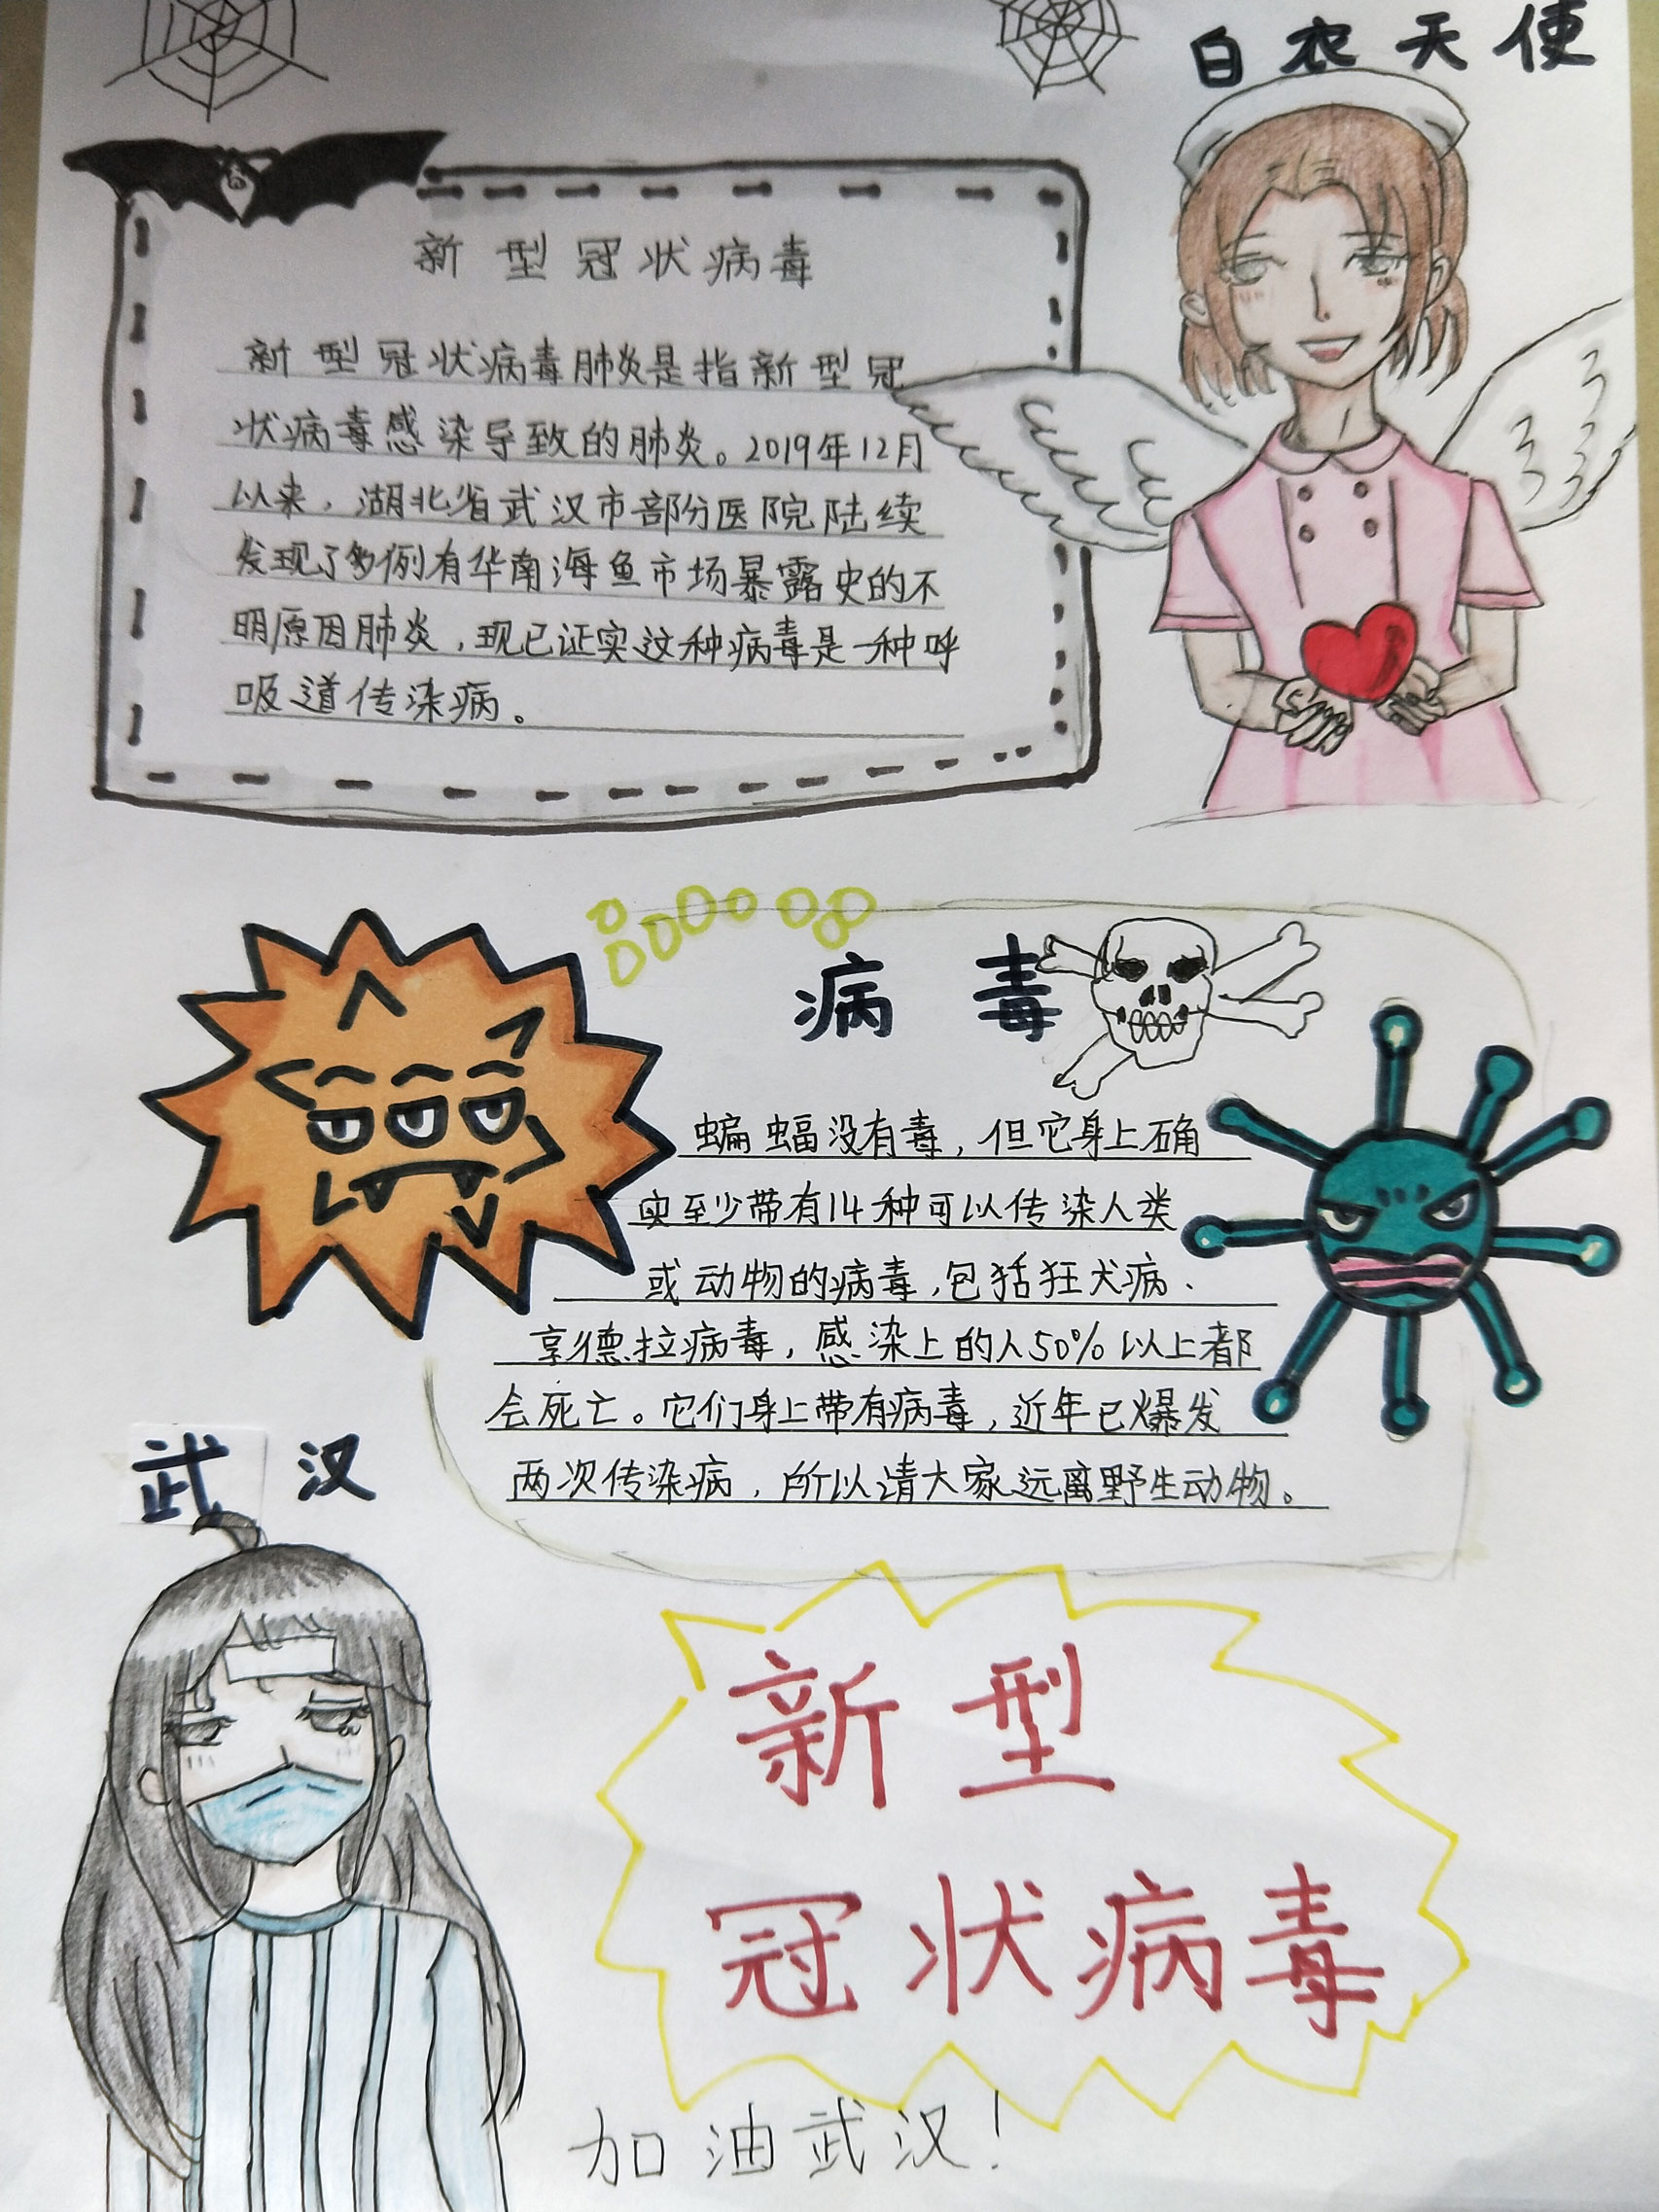 白衣天使
新型冠状病毒
新型冠状病毒肺炎是指新型冠
状病毒感染导致的肺炎。2019年12月
以来，湖北省武汉市部份医院陆续
发现了多例有华南海鱼市场暴露史的不
明原因肺炎，现已证实这种病毒是一种呼
吸道传染病。
病毒
蝙蝠没有毒，但它身上确
实至少带有14种可以传染人类
或动物的病毒，包括狂犬病、
享德拉病毒，感染上的人50%以上都
会死亡。它们身上带有病毒，近年已爆发
两次传染病，所以请大家远离野生动物。
武汉
新型
冠状病毒
加油武汉！